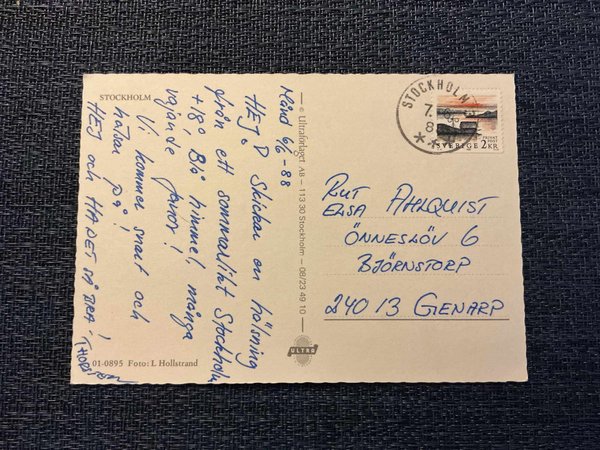 STOCKHOLM
Månd 6/6-88
HEJ! Skickar en hälsning
från ett sommarlikt Stockholm
+18° Blå himmel, många
vajande fanor!
Vi kommer snart och
hälsar på!
HEJ och HA DET SÅ BRA!
01-0895 Foto: L Hollstrand
© Ultraförlaget AB – 113 30 Stockholm – 08/23 49 10
ULTRA
STOCKHOLM
7.6
8
SVERIGE 2KR
RUT
ELSA AHLQUIST
ÖNNESLÖV 6
BJÖRNSTORP
240 13 GENARP